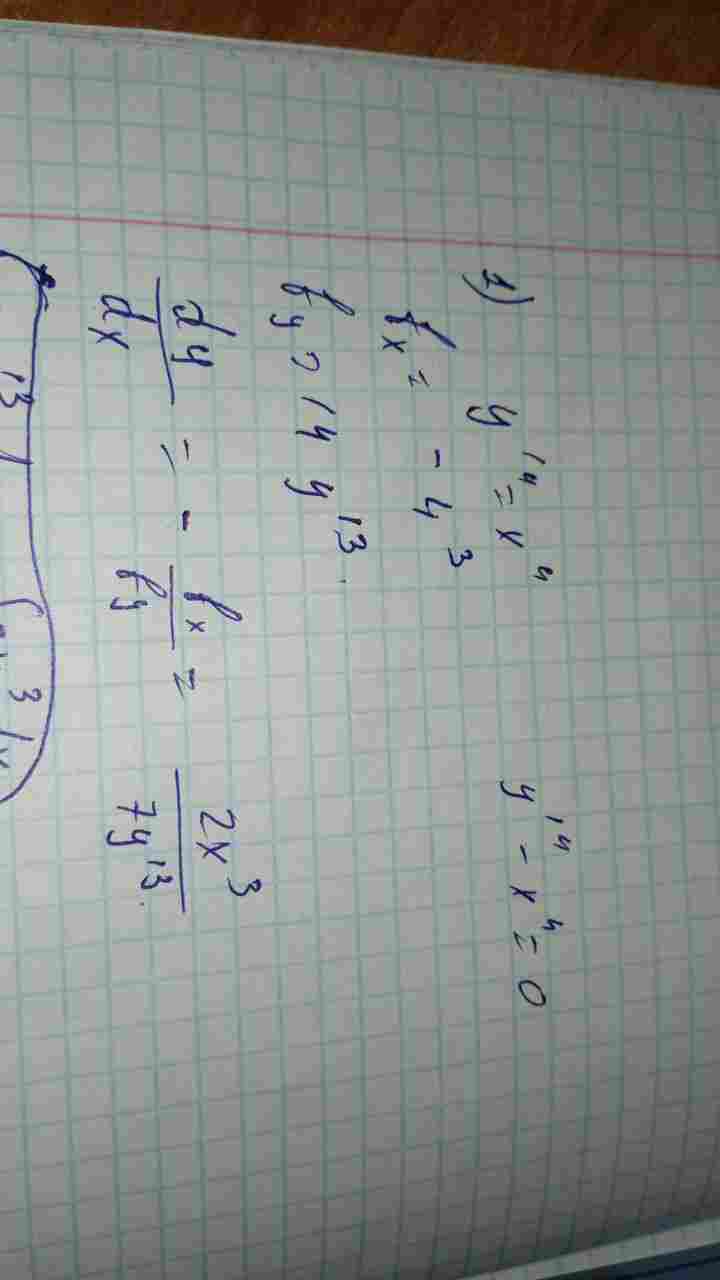 1) y¹⁴ = x⁴ y¹⁴ - x⁴ = 0
fx = - 4³
fy = 14 y¹³.
dy/dx = - fx/fy = 2x³/7y¹³.